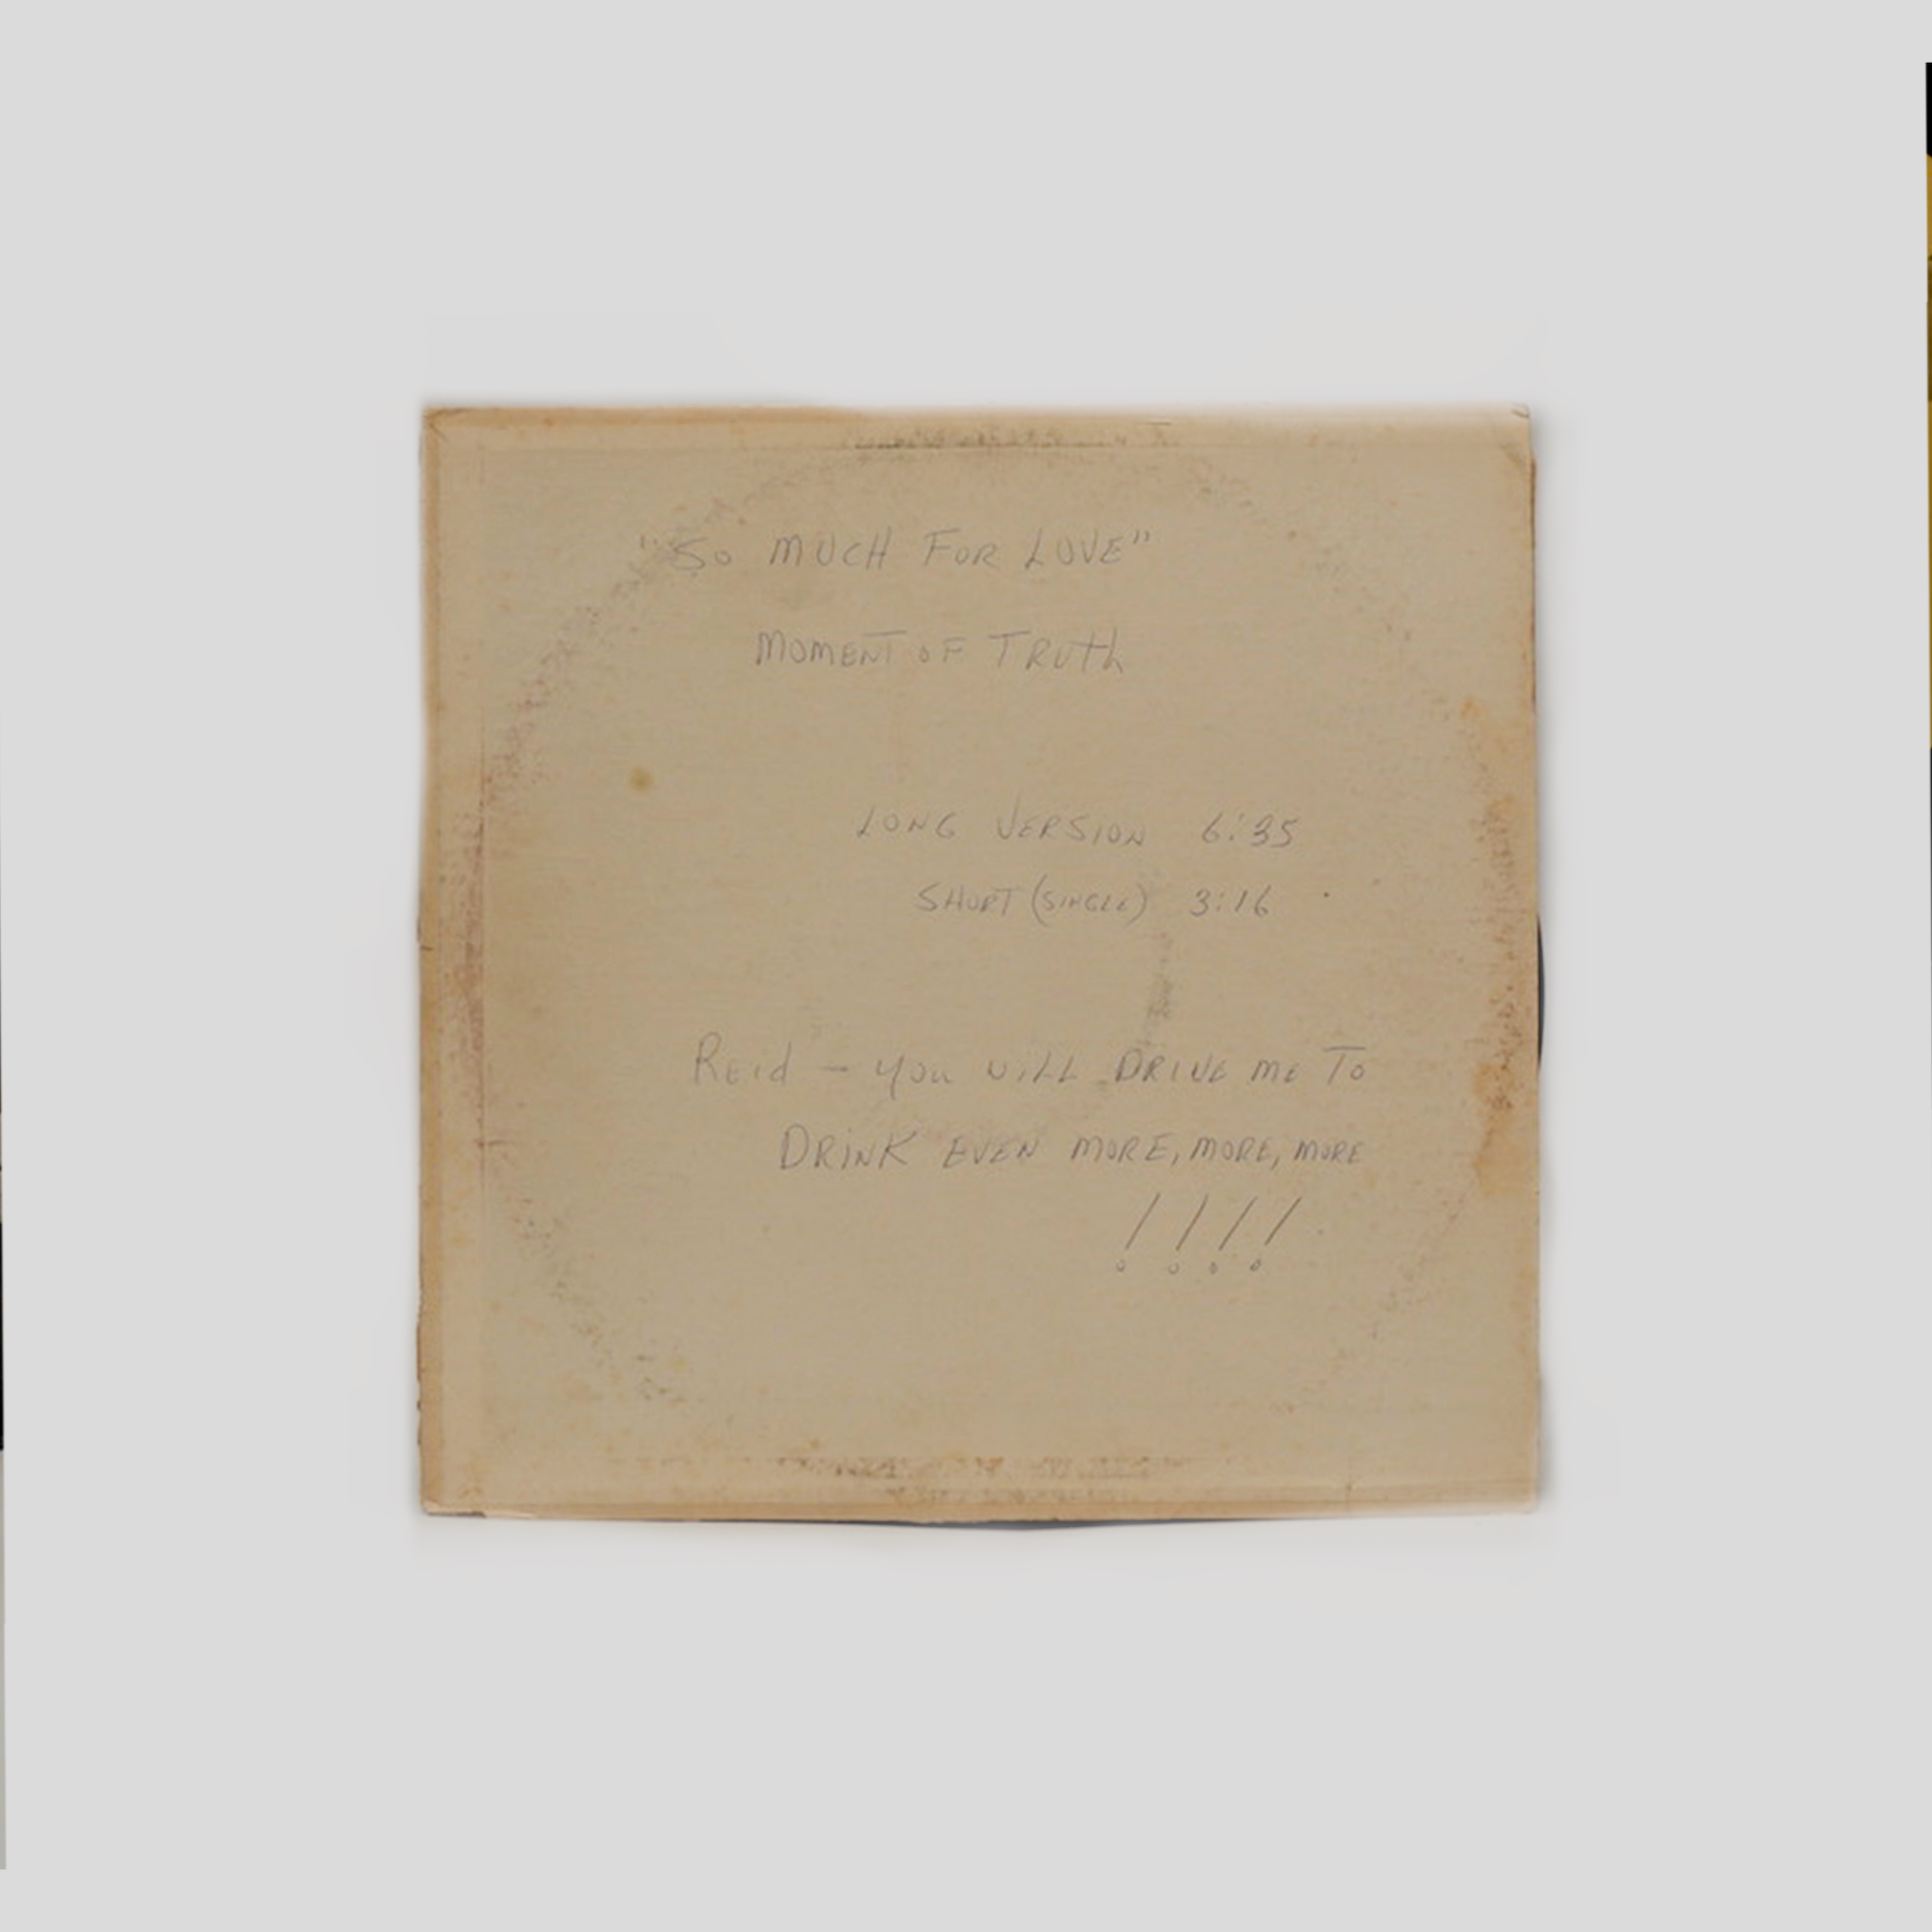 "So MUCH FOR LOVE"
MOMENT OF TRUTh
LONG VERSION 6:35
SHORT (SINGLE) 3:16
Reid - you will DRIVE me To
DRiNK EVEN MORE, MORE, MORE
!!!!